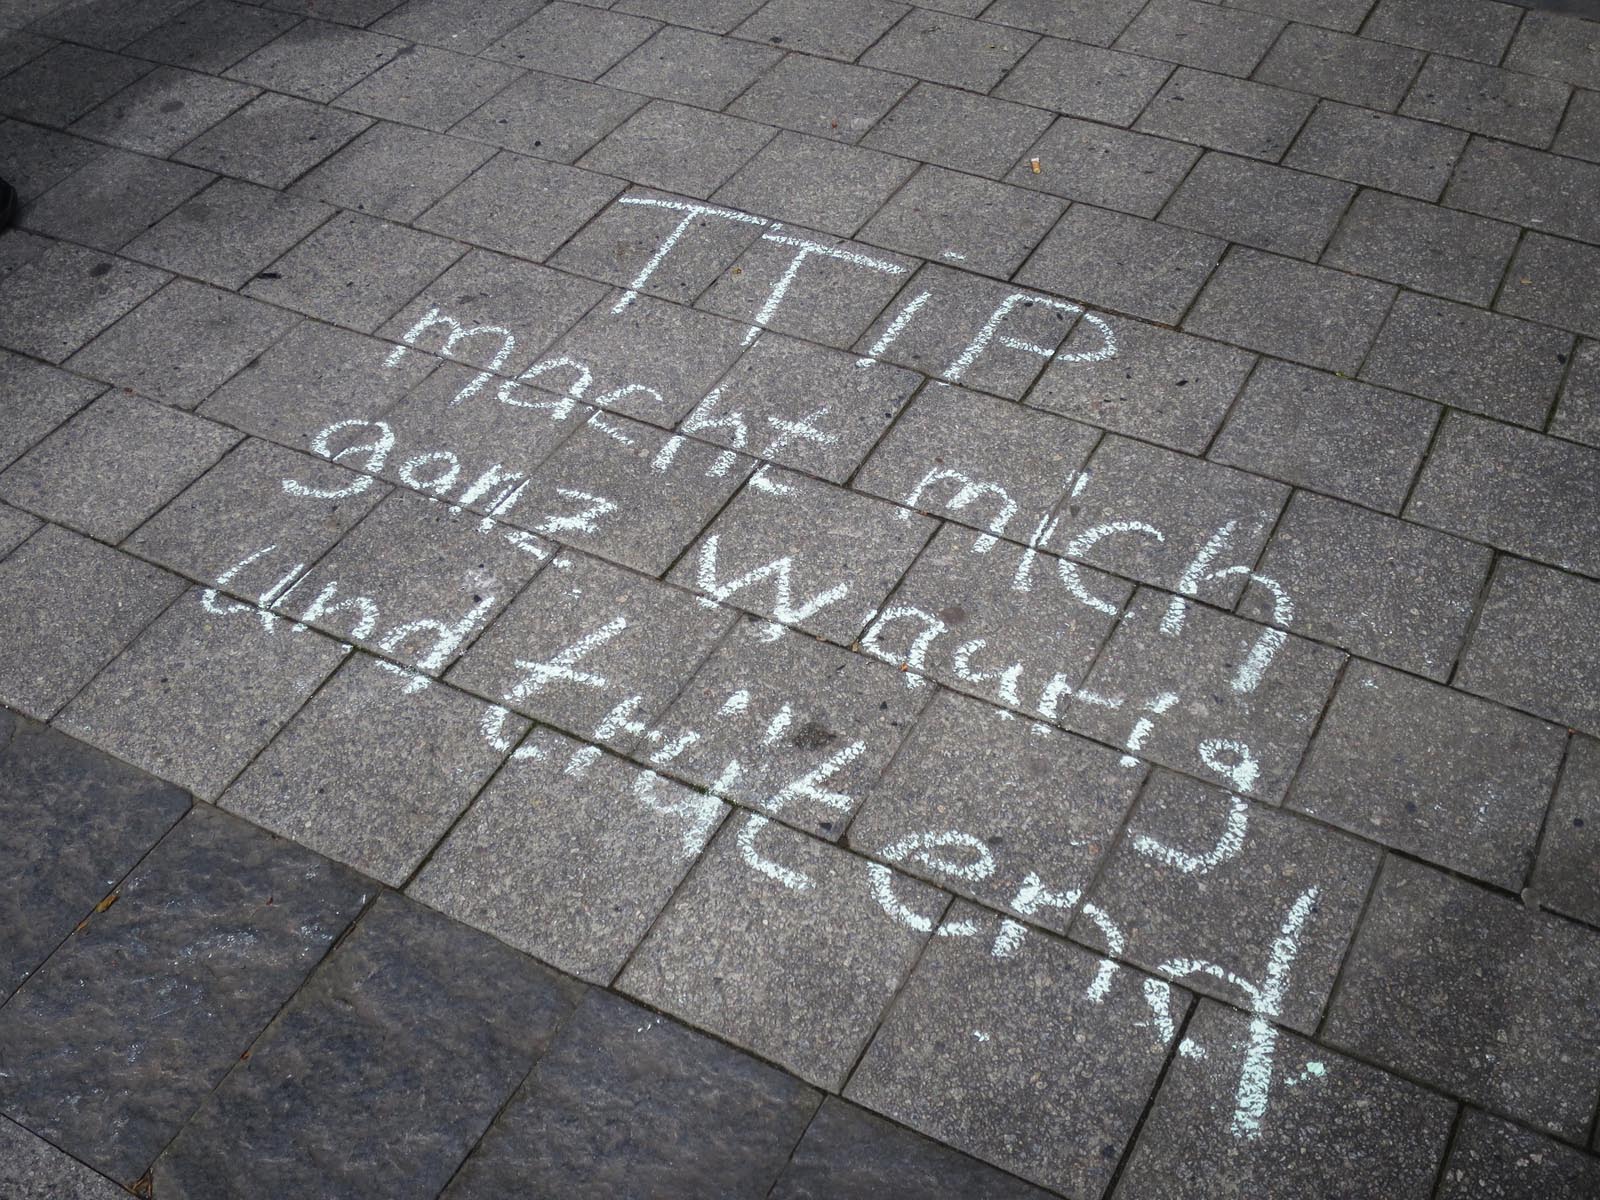 TTiP
macht mich
ganz waurig
und trückend